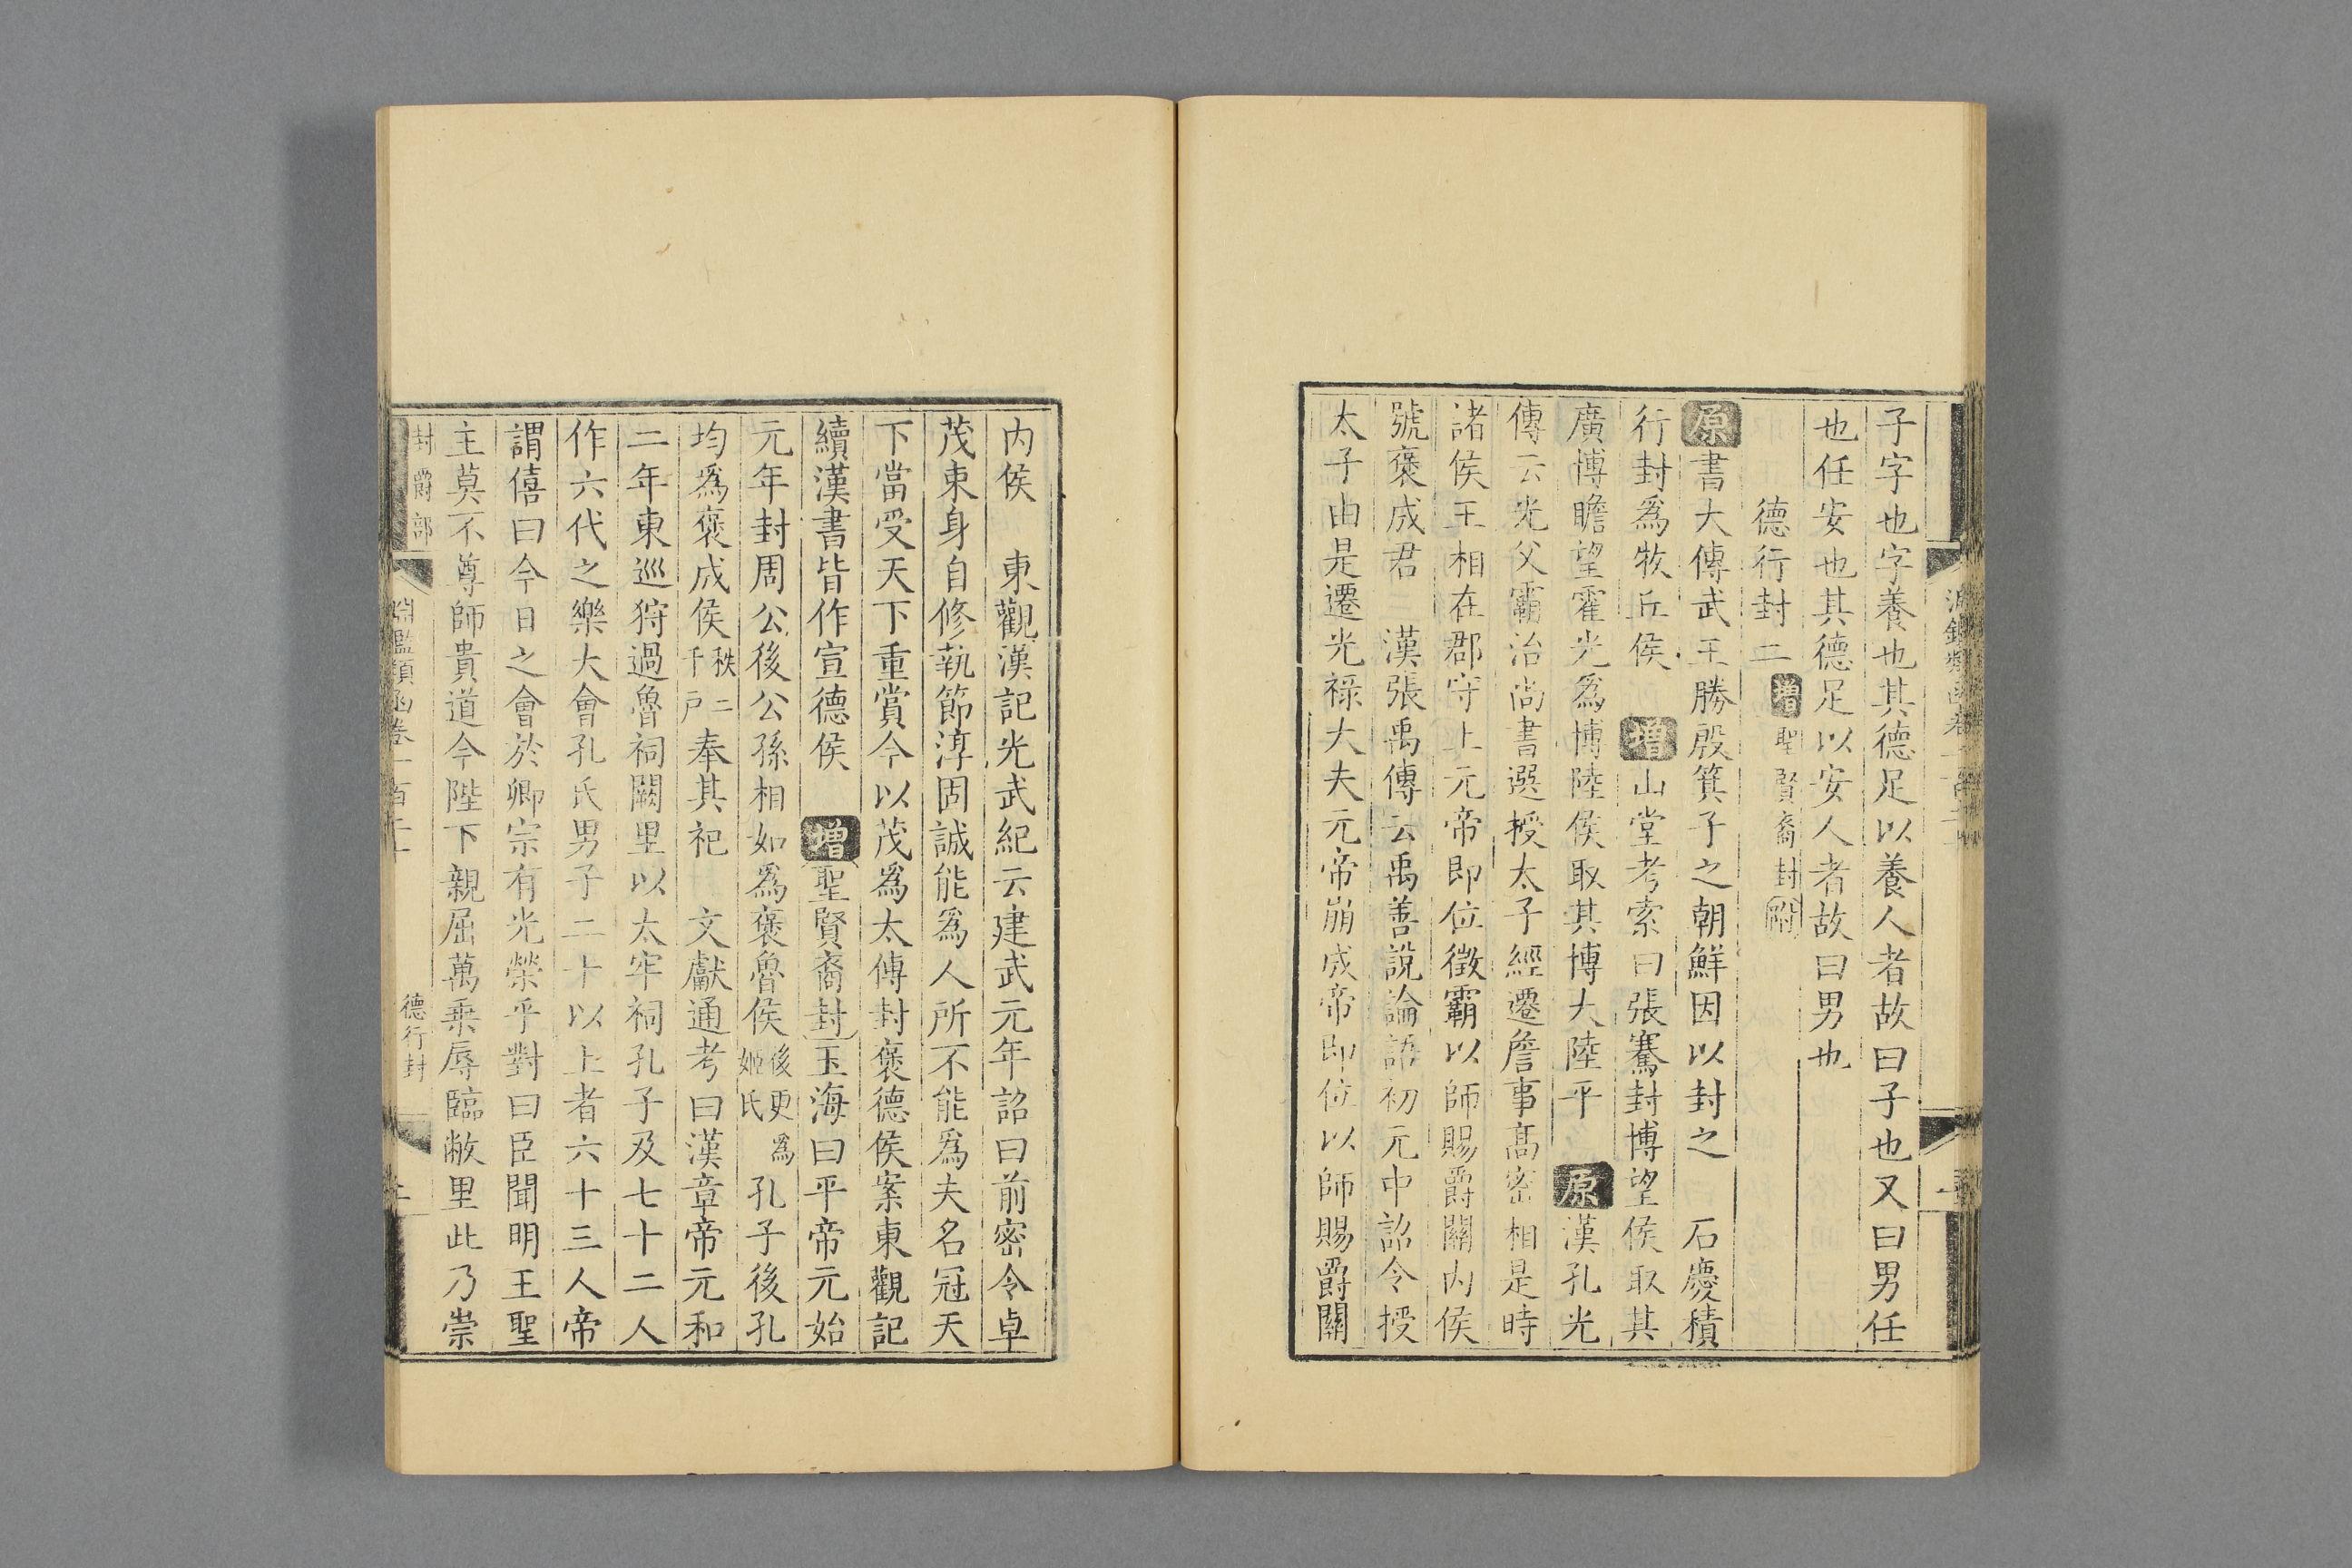 子字也字養也其德足以養人者故曰子也又曰男任
也任安也其德足以安人者故曰男也
德行封二 增聖賢裔封附
原書大傳武王勝殷箕子之朝鮮因以封之 石慶積
行封爲牧丘侯 增山堂考索曰張騫封博望侯取其
廣博瞻望霍光爲博陸侯取其博大陸平 原漢孔光
傳云光父霸治尚書選授太子經遷詹事高密相是時
諸侯王相在郡守上元帝即位徵霸以師賜爵關內侯
號褒成君 漢張禹傳云禹善說論語初元中詔令授
太子由是遷光祿大夫元帝崩成帝即位以師賜爵關
內侯 東觀漢記光武紀云建武元年詔曰前密令卓
茂束身自修執節淳固誠能爲人所不能爲夫名冠天
下當受天下重賞今以茂爲太傅封褒德侯案東觀記
續漢書皆作宣德侯 增聖賢裔封玉海曰平帝元始
元年封周公後公孫相如爲褒魯侯後更爲姬氏孔子後孔
均爲褒成侯秩二千戶奉其祀 文獻通考曰漢章帝元和
二年東巡狩過魯祠闕里以太牢祠孔子及七十二人
作六代之樂大會孔氏男子二十以上者六十三人帝
謂僖曰今日之會於卿宗有光榮乎對曰臣聞明王聖
主莫不尊師貴道今陛下親屈萬乘辱臨敝里此乃崇
封爵部 淵鑑類函卷一百二十 德行封